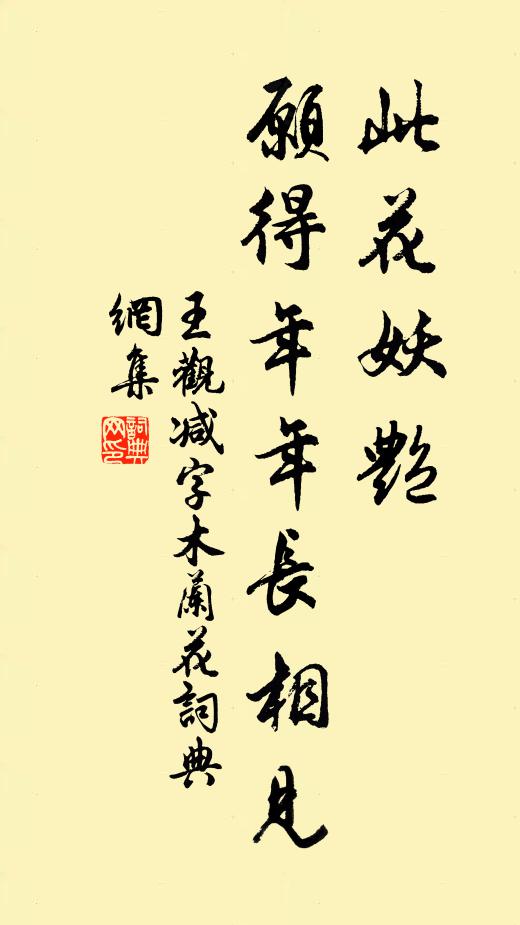 此花妖艷
願得年年長相見
王觀减字木蘭花詞典
網集
詞典
网印